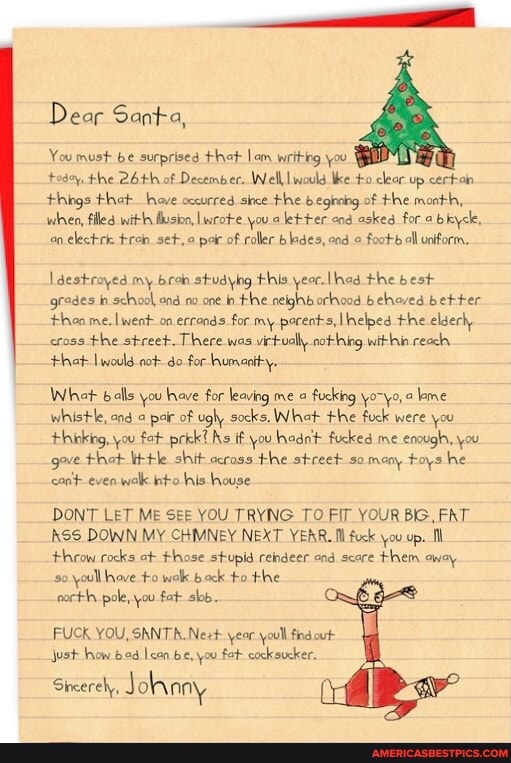 Dear Santa,
You must be surprised that I am writing you
today, the 26th of December. Well, I would like to clear up certain
things that have occurred since the beginning of the month,
when, filled with illusion, I wrote you a letter and asked for a bicycle,
an electric train set, a pair of roller blades, and a football uniform.
I destroyed my brain studying this year. I had the best
grades in school, and no one in the neighborhood behaved better
than me. I went on errands for my parents, I helped the elderly
cross the street. There was virtually nothing within reach
that I would not do for humanity.
What balls you have for leaving me a fucking yo-yo, a lame
whistle, and a pair of ugly socks. What the fuck were you
thinking, you fat prick? As if you hadn't fucked me enough, you
gave that little shit across the street so many toys he
can't even walk into his house
DON'T LET ME SEE YOU TRYING TO FIT YOUR BIG, FAT
ASS DOWN MY CHIMNEY NEXT YEAR. I'll fuck you up. I'll
throw rocks at those stupid reindeer and scare them away
so you'll have to walk back to the
north pole, you fat slob.
FUCK YOU, SANTA. Next year you'll find out
just how bad I can be, you fat cocksucker.
Sincerely, Johnny
AMERICASBESTPICS.COM